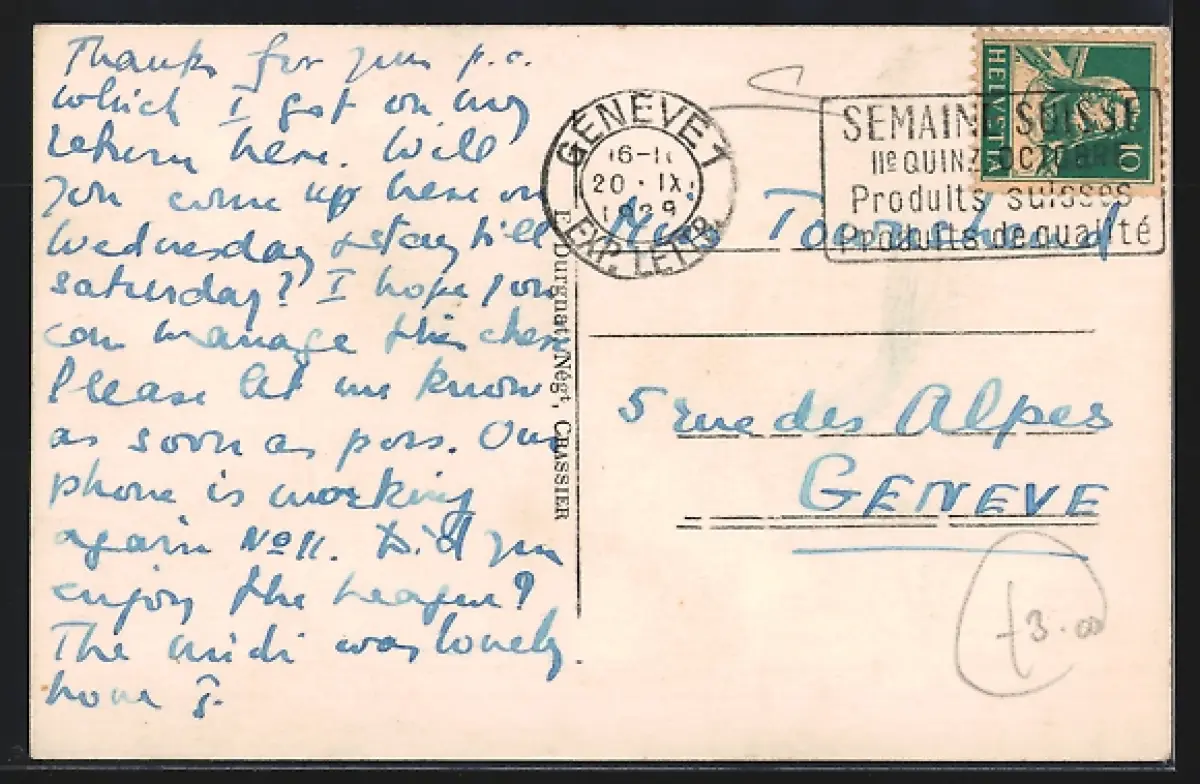 Thanks for your p.c.
which I got on my
return here. Will
you come up here on
Wednesday & stay till
Saturday? I hope you
can manage this chère
Please let me know
as soon as poss. Our
phone is working
again No 11. Did you
enjoy the League?
The midi was lovely.
Love J.
Durgnat, Négt, CRASSIER
GENÈVE 1
20·IX
1929
EXP. LETTR.
SEMAINE SUISSE
IIe QUINZ. OCTOBRE
Produits suisses
Produits de qualité
HELVETIA
10
Miss
5 rue des Alpes
GENEVE
3.00